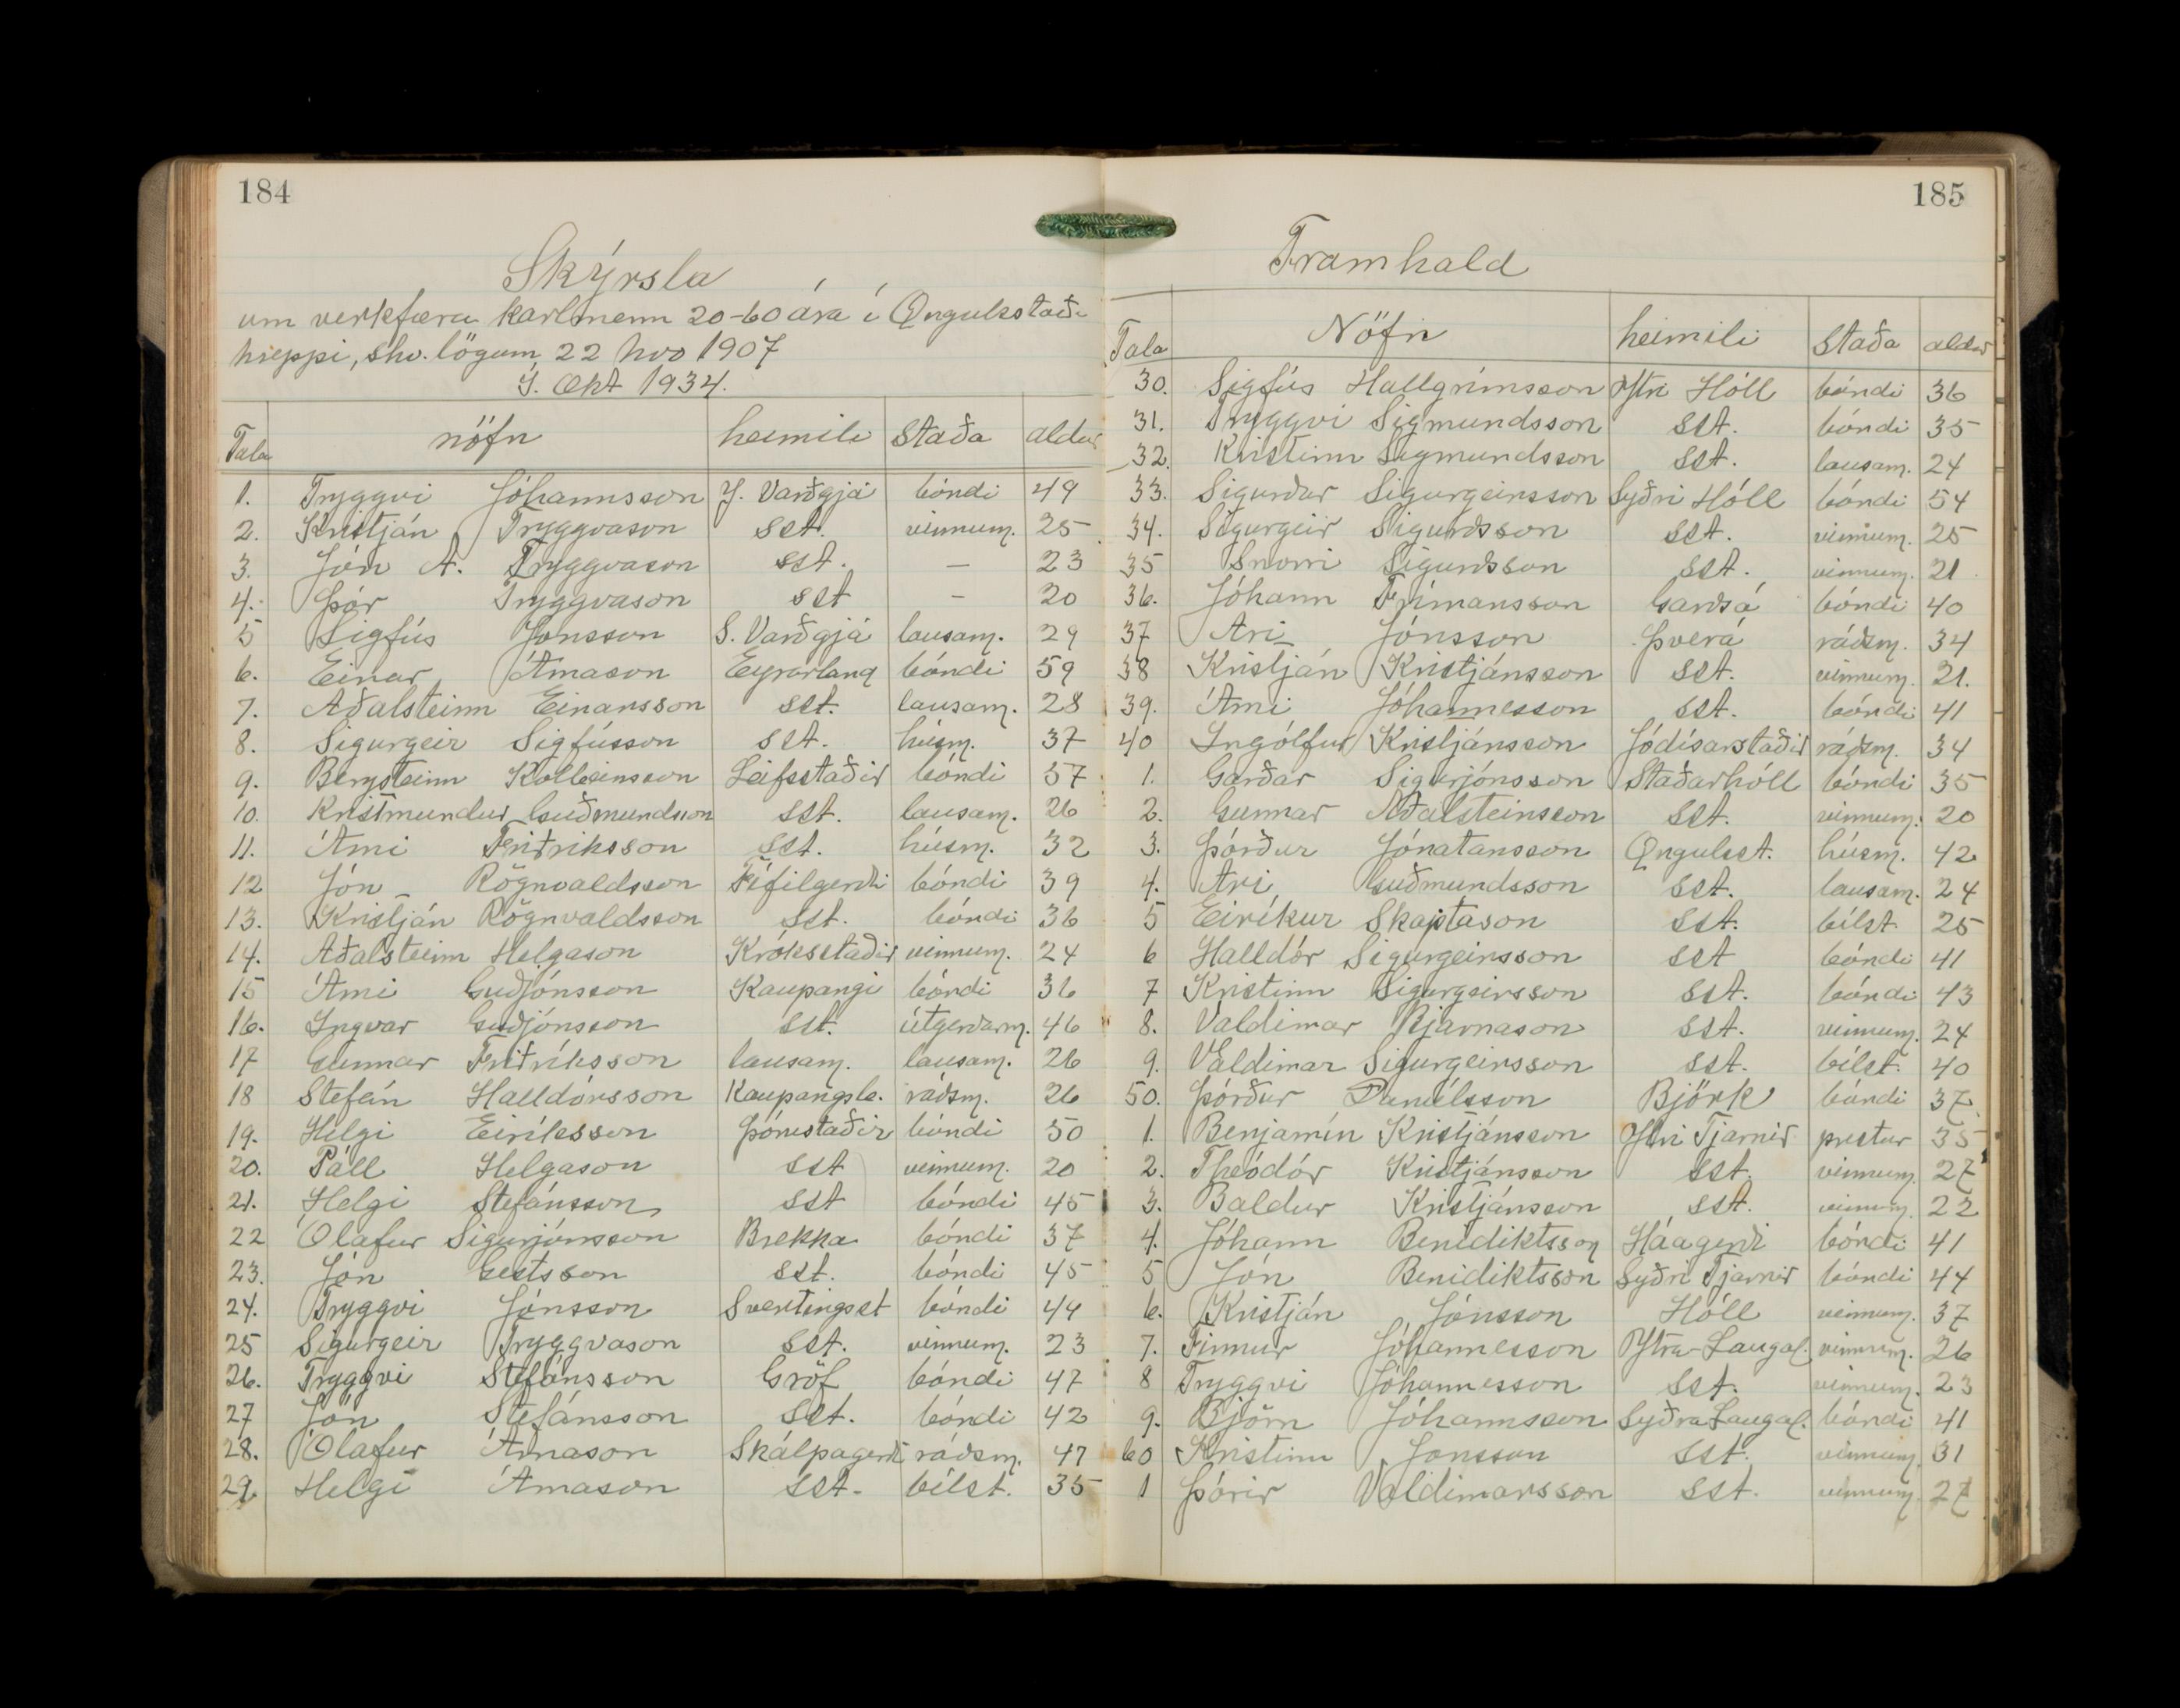 184
Skýrsla
um verkfæra karlmenn 20-60 ára í Qngulsstað-
hreppi, shv. lögum 22 Nvo 1907
Í. Okt 1934.
Tala nöfn heimili Staða aldur
1. Tryggvi Jóhannsson Y. Varðgjá bóndi 49
2. Kristján Tryggvason sst. vinnum. 25
3. Jón A. Tryggvason sst. — 23
4. Þór Tryggvason sst – 20
5 Sigfús Jonsson S. Varðgjá lausam. 29
6. Einar Árnason Eyrarland bóndi 59
7. Aðalsteinn Einarsson sst. lausam. 28
8. Sigurgeir Sigfússon sst. húsm. 37
9. Bergsteinn Kolbeinsson Leifsstaðir bóndi 57
10. Kristmundur Guðmundsson sst. lausam. 26
11. Árni Friðriksson sst. húsm. 32
12 Jón Rögnvaldsson Fífilgerði bóndi 39
13. Kristján Rögnvaldsson sst. bóndi 36
14. Aðalsteinn Helgason Króksstaðir vinnum. 24
15 Árni Guðjónsson Kaupangi bóndi 36
16. Ingvar Guðjónsson sst. útgerðarm. 46
17 Gunnar Friðriksson lausam. lausam. 26
18 Stefán Halldórsson Kaupangsb. ráðsm. 26
19. Helgi Eiríksson Þórustaðir bóndi 50
20. Páll Helgason sst vinnum. 20
21. Helgi Stefánsson sst bóndi 45
22 Ólafur Sigurjónsson Brekka bóndi 37
23. Jón Gestsson sst. bóndi 45
24. Tryggvi Jónsson Svertingsst bóndi 44
25 Sigurgeir Tryggvason sst. vinnum. 23
26. Tryggvi Stefánsson Gröf bóndi 47
27 Jón Stefánsson sst. bóndi 42
28. Ólafur Árnason Skálpagerði ráðsm. 47
29. Helgi Árnason sst. bílst. 35
185
Framhald
Tala Nöfn heimili Staða aldur
30. Sigfús Hallgrímsson Ytri Hóll bóndi 36
31. Tryggvi Sigmundsson sst. bóndi 35
32. Kristinn Sigmundsson sst. lausam. 24
33. Sigurður Sigurgeirsson Syðri Hóll bóndi 54
34. Sigurgeir Sigurðsson sst. vinnum. 25
35 Snorri Sigurðsson sst. vinnum. 21
36. Jóhann Frímansson Garðsá bóndi 40
37 Ari Jónsson Þverá ráðsm. 34
38 Kristján Kristjánsson sst. vinnum. 21.
39. Árni Jóhannesson sst. bóndi 41
40 Ingólfur Kristjánsson Jódísarstaðir ráðsm. 34
1. Garðar Sigurjónsson Staðarhóll bóndi 35
2. Gunnar Aðalsteinsson sst. vinnum. 20
3. Þórður Jónatansson Qngulsst. húsm. 42
4. Ari Guðmundsson sst. lausam. 24
5 Eiríkur Skaptason sst. bílst 25
6 Halldór Sigurgeirsson sst bóndi 41
7 Kristinn Sigurgeirsson sst. bóndi 43
8. Valdimar Bjarnason sst. vinnum. 24
9. Valdimar Sigurgeirsson sst. bílst. 40
50. Þórður Daníelsson Björk bóndi 37
1. Benjamín Kristjánsson Ytri Tjarnir prestur 35
2. Theódór Kristjánsson sst. vinnum. 27
3. Baldur Kristjánsson sst. vinnum. 22
4. Jóhann Benidiktsson Háagerði bóndi 41
5 Jón Benidiktsson Syðri Tjarnir bóndi 44
6. Kristján Jónsson Hóll vinnum. 37
7. Finnur Jóhannesson Ytra-Laugal. vinnum. 26
8 Tryggvi Jóhannesson sst. vinnum. 23
9. Björn Jóhannsson Syðra Laugal. bóndi 41
60 Kristinn Jonsson sst. vinnum. 31
1 Þórir Valdimarsson sst. vinnum. 27